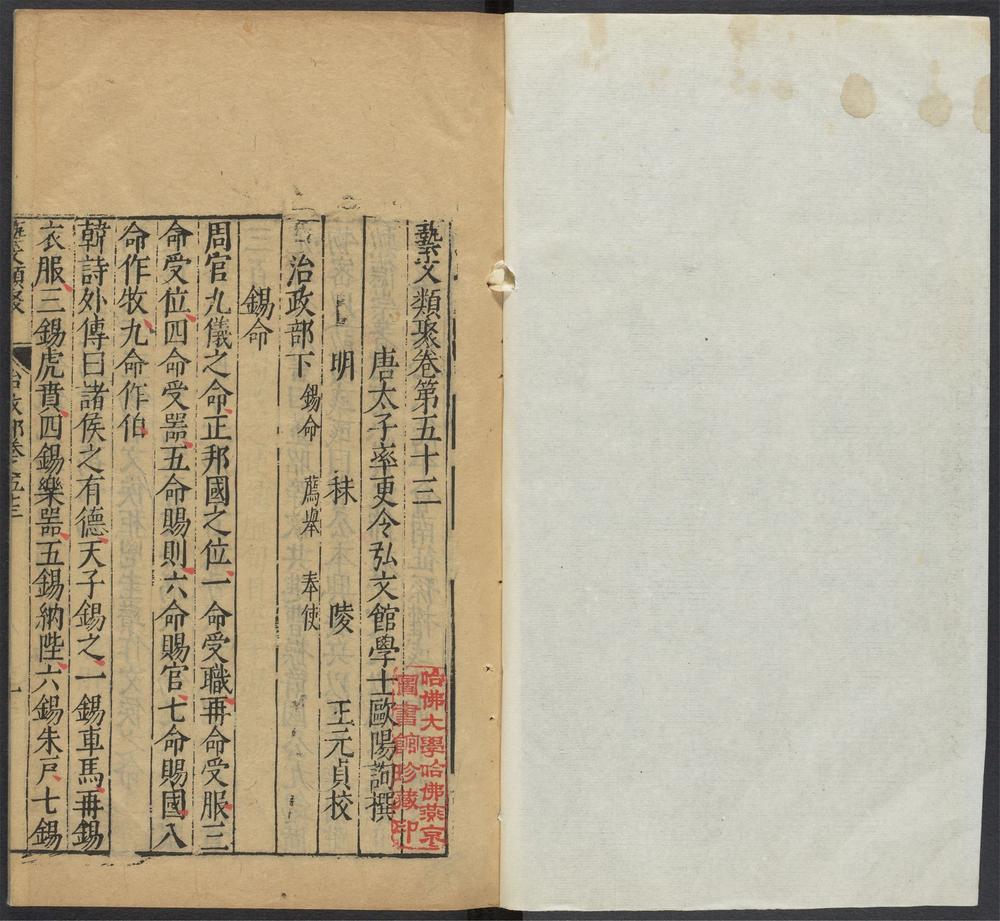 藝文類聚卷第五十三
唐太子率更令弘文館學士歐陽詢撰
明 秣陵 王元貞校
治政部下 錫命 薦舉 奉使
錫命
周官九儀之命正邦國之位一命受職再命受服三
命受位四命受器五命賜則六命賜官七命賜國八
命作牧九命作伯
韓詩外傳曰諸侯之有德天子錫之一錫車馬再錫
衣服三錫虎賁四錫樂器五錫納陛六錫朱戶七錫
藝文類聚 治政部卷之五十三 一
哈佛大學哈佛燕京
圖書館珍藏印